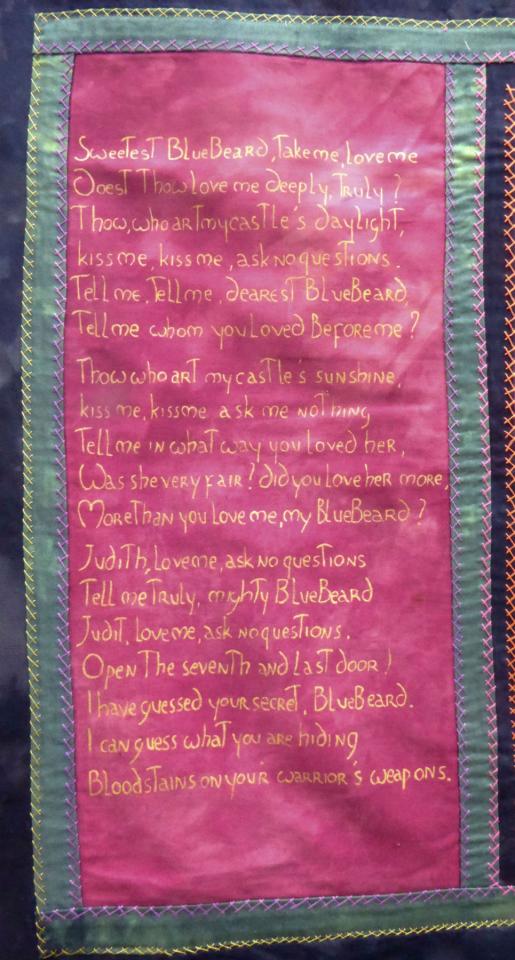 Sweetest BlueBeard, Take me, love me
Doest Thow love me deeply, Truly?
Thow, who art my castle's daylight,
kiss me, kiss me, ask no questions.
Tell me, Tell me, dearest BlueBeard,
Tell me whom you loved Before me?
Thow who art my castle's sunshine,
kiss me, kiss me ask me nothing
Tell me in what way you loved her,
Was she very fair? did you love her more,
More Than you love me, my BlueBeard?
Judith, Love me, ask no questions
Tell me Truly, mighty BlueBeard
Judit, Love me, ask no questions.
Open The seventh and last door!
I have guessed your secret, BlueBeard.
I can guess what you are hiding
Bloodstains on your warrior's weapons.